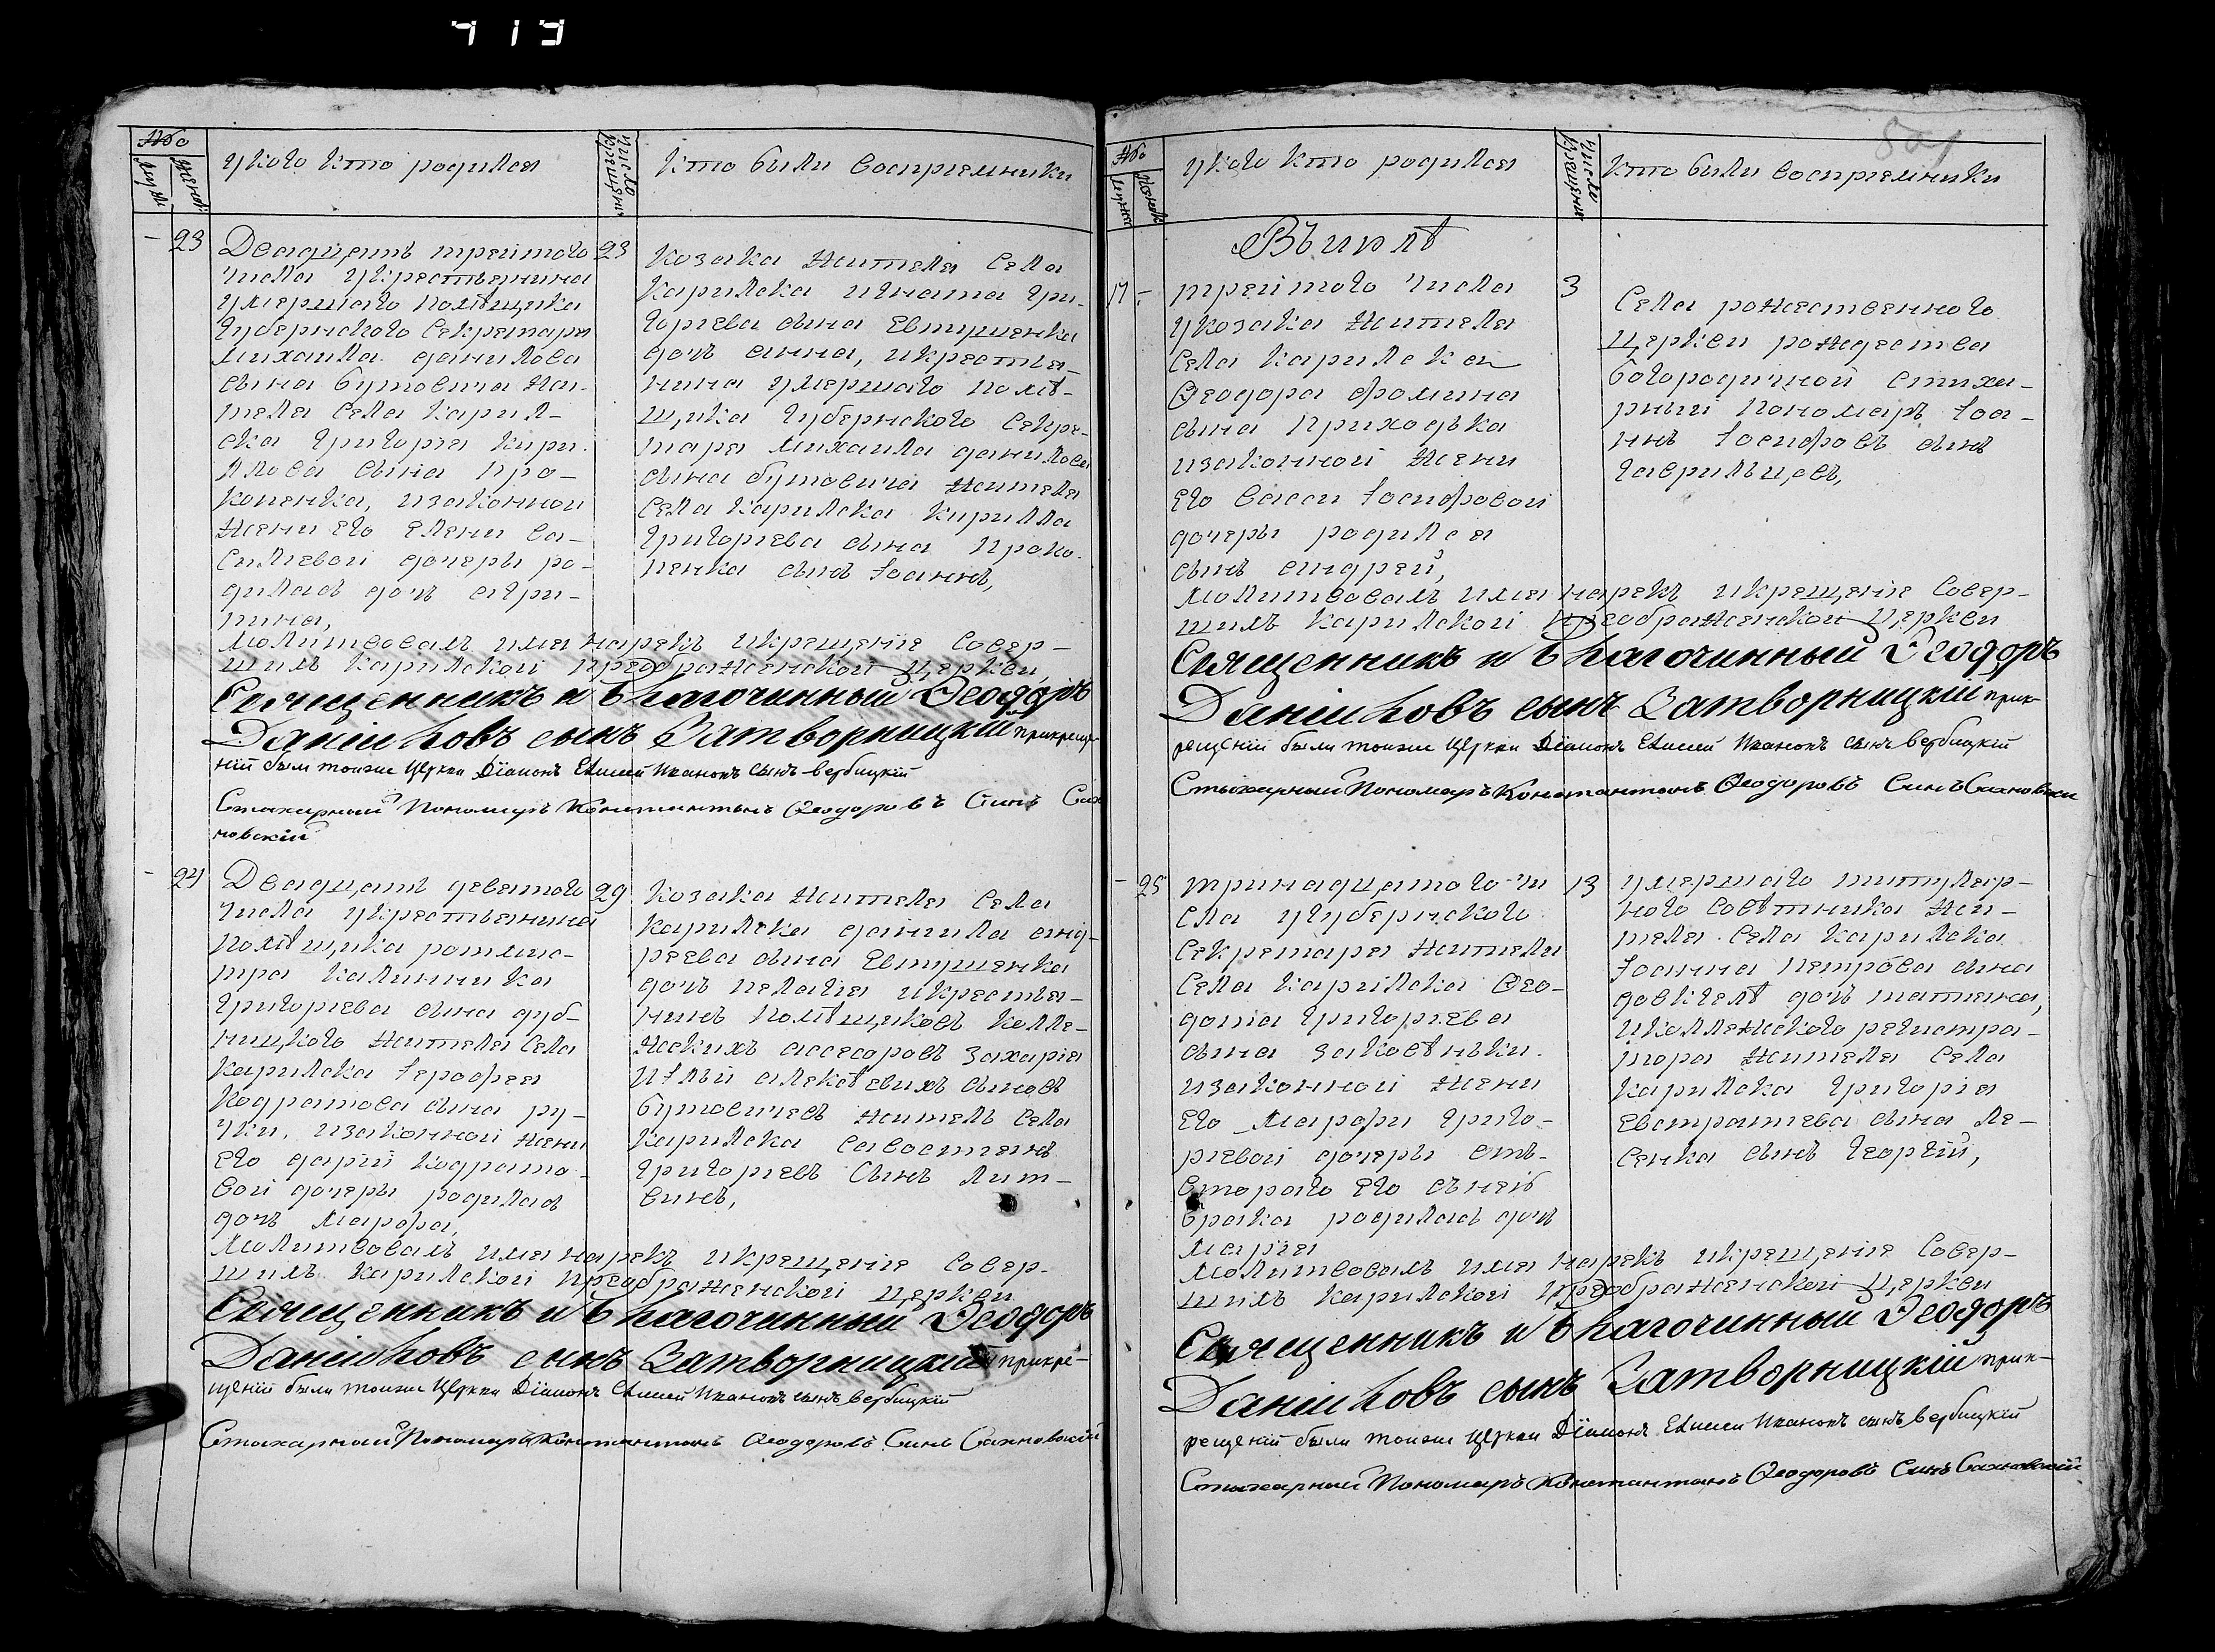 419
№
мужеска
женска
у кого кто родился
число крещения
кто были восприемники
23
Двадцать третого
числа укрестьянина
умершаго помѣщика
губернского секретаря
михаила данилова
сына бутовича жи-
теля села карил-
ска григорія кири-
ллова сына про-
копенка, изаконной
жени его елени ва-
силіевой дочеры ро-
дилась дочь агри-
пина,
23
козака жителя села
карилска игната гри-
горіева сына Евтушенка
дочь анна, икрестья-
нина умершаго помѣ-
щика губернского секре-
таря михаила данилова
сына бутовича жителя
села карилска кирилла
григоріева сына проко-
пенка сынъ Іоаннъ,
молитвовалъ имя нарекъ икрещеніе совер-
шилъ карилской преображенской церкви,
Священникъ и Благочинный Феодоръ
Даніиловъ сынъ Затворницкій прикреще-
ніи были тоиже Церкви Діаконъ Елисей Ивановъ сынъ вербицкій
Стихарный Пономарь Константинъ Феодоровъ Синъ Сах
новскій
24
Двадцать девятого
числа укрестьянина
помѣщика ротмис-
тра калинника
григоріева сына дуб-
ницкого жителя села
карилска Іерофея
кодратова сына ру-
чки, изаконной жени
его даріи кодрато-
вой дочеры родилась
дочь марфа,
29
козака жителя села
карилска данила анд-
реева сына Евтушенка
дочь пелагія икрестья-
нинъ помѣщиковъ колле-
жскихъ асесоровъ захарія
иіліи алексѣевихъ сыновъ
бутовичевъ житель села
карилска савостіянъ
григоріевъ сынъ лит-
винъ,
молитвовалъ имя нарекъ икрещеніе совер-
шилъ карилской преображенской церкви
Священникъ и Благочинный Феодоръ
Даніиловъ сынъ Затворницкій прикре-
щеніи были тоиже Церкви Діаконъ Елисей Ивановъ сынъ вербицкій
Стихарный Пономарь Константинъ Феодоровъ Синъ Сахновскій
№
мужеска
женска
у кого кто родился
число крещения
кто были восприемники
Въ июлѣ
17
третого числа
укозака жителя
села карилска
Феодора фомина
сына приходька
изаконной жени
его васси Іосифовой
дочеры родился
сынъ андрей,
3
села рожественного
церкви рождества
богородичной стиха-
рный пономарь Іоа-
ннъ Іосифовъ сынъ
гаврильцовъ,
молитвовалъ имя нарекъ икрещеніе совер-
шилъ карилской преображенской церкви
Священникъ и Благочинный Феодоръ
Даніиловъ сынъ Затворницкій прик-
рещеніи были тоиже Церкви Діаконъ Елисей Ивановъ сынъ вербицкій
Стихарный Пономарь Константинъ Феодоровъ Синъ Сахновски
25
тринадцатого чи
сла угубернского
секретаря жителя
села карілска Фео-
дота григоріева
сына заковѣньки
изаконной жени
его марфи григо-
ріевой дочеры отъ
втораго его съней
брака родилась дочь
марія
13
умершаго титуляр-
ного совѣтника жи-
теля села карилска
Іоанна петрова сына
довкгелѣ дочь татіяна,
иколлежского регистра-
тора жителя села
карилска григорія
Евстратіева сына ле-
сенка сынъ георгій,
молитвовалъ имя нарекъ икрещеніе совер-
шилъ карилской преображенской церкви
Священникъ и Благочинный Феодоръ
Даніиловъ сынъ Затворницкій прик-
рещеніи были тоиже Церкви Діаконъ Елисей Ивановъ сынъ вербицкій
Стихарный Пономарь Константинъ Феодоровъ Синъ Сахновскій